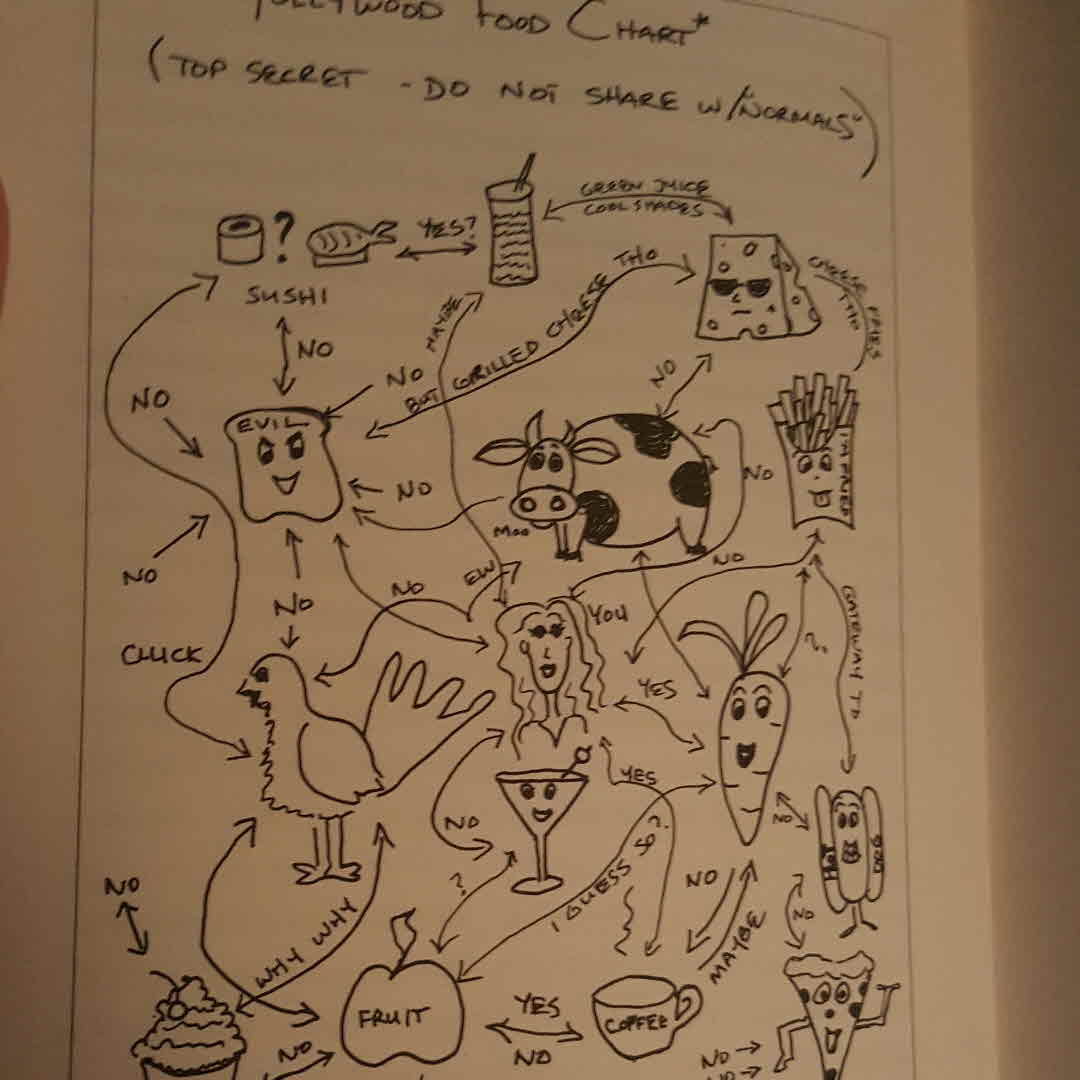 HOLLYWOOD FOOD CHART*
(TOP SECRET - DO NOT SHARE W/"NORMALS")
GREEN JUICE
COOL SHADES
? YES?
SUSHI
THO
CHEESE FRIES
THO
NO
MAYBE
NO
BUT GRILLED CHEESE
NO
NO
EVIL
I'M FRIED
NO
NO
MOO
NO
NO
EW
NO
NO
YOU
GATEWAY TO
?
CHUCK
YES
YES
NO
NO
DOG
I GUESS SO?
?
NO
NO
NO
MAYBE
WHY WHY
FRUIT
YES
NO
COFFEE
NO
NO
NO